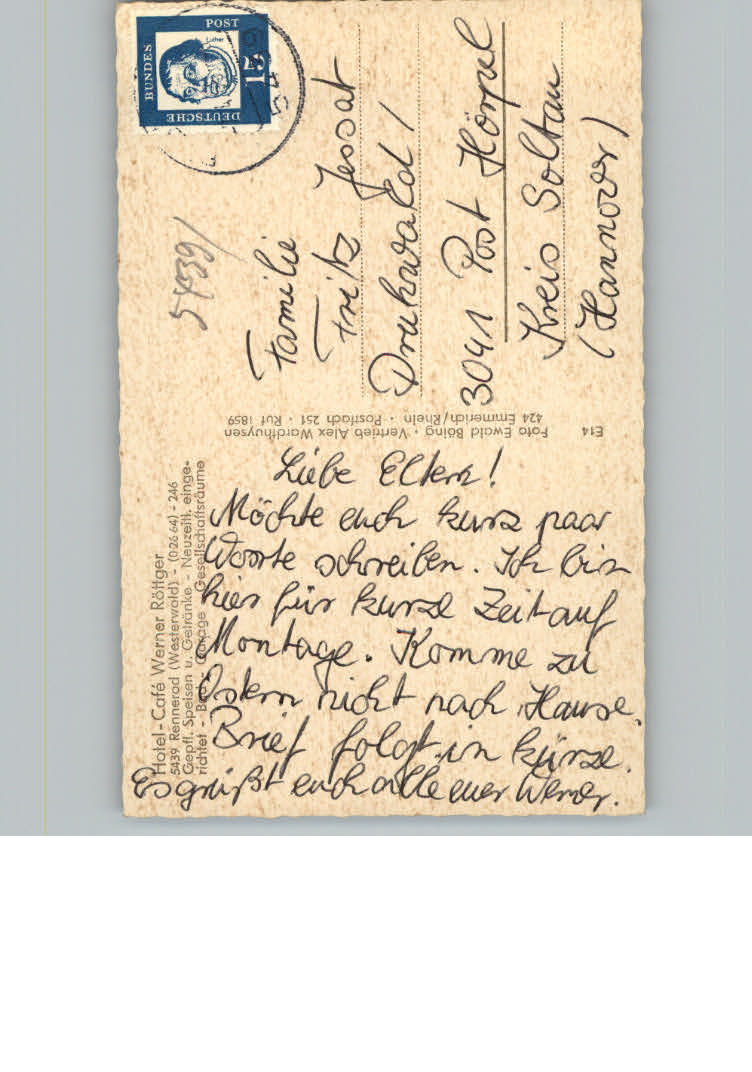 Hotel-Café Werner Röttger
5439 Rennerod (Westerwald) - (02664) - 246
Gepfl. Speisen u. Getränke - Neuzeitl. einge-
richtet - Garage Gesellschaftsräume
Liebe Eltern!
Möchte euch kurz paar
Worte schreiben. Ich bin
hier für kurze Zeit auf
Montage. Komme zu
Ostern nicht nach Hause.
Brief folgt in kürze.
Es grüßt euch alle euer Werner.
E14
Foto Ewald Böing · Vertrieb Alex Wardthuysen
424 Emmerich/Rhein · Postfach 251 · Ruf 1859
DEUTSCHE
BUNDES
POST
Luther
15
5439/
Familie
Fritz Jessat
3041 Post Hörpel
Kreis Soltau
(Hannover)